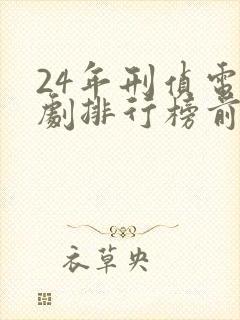 24年刑偵電
劇排行榜前
衣草央